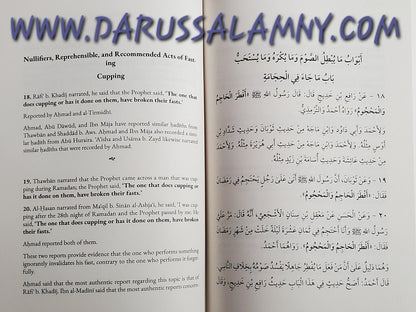 WWW.DARUSSALAMNY.COM
Nullifiers, Reprehensible, and Recommended Acts of Fast-
ing
Cupping
18. Rāfi' b. Khadīj narrated, he said that the Prophet said, 'The one that
does cupping or has it done on them, have broken their fasts.'
Reported by Aḥmad and al-Tirmidhī.
Aḥmad, Abū Dāwūd, and Ibn Māja also reported similar ḥadīths from
Thawbān and Shaddād b. Aws. Aḥmad and Ibn Māja also reported a sim-
ilar ḥadīth from Abū Huraira. 'Aisha and Usāma b. Zayd likewise narrated
similar ḥadīths that were recorded by Aḥmad.
19. Thawbān narrated that the Prophet came across a man that was cup-
ping during Ramadan; the Prophet said, 'The one that does cupping or
has it done on them, have broken their fasts.'
20. Al-Ḥasan narrated from Ma'qil b. Sinān al-Ashja'ī, he said, 'I was cupping
after the 28th night of Ramadan and the Prophet passed by me. He
said, 'The one that does cupping or has it done on them, have broken
their fasts.'
Aḥmad reported both of them.
These two reports provide evidence that the one who performs something
ignorantly invalidates his fast, contrary to one that performs it forget-
fully.
Aḥmad said that the most authentic report regarding this topic is that of
Rāfi' b. Khadīj. Ibn al-Madīnī said that the most authentic reports concern-
أبواب ما يبطل الصوم وما يكره وما يستحب
باب ما جاء في الحجامة
١٨ - عن رافع بن خديج، قال: قال رسول الله ﷺ «أفطر الحاجم
والمحجوم» رواه أحمد والترمذي.
ولأحمد وأبي داود وابن ماجه من حديث ثوبان وحديث شداد بن
أوس مثله. ولأحمد وابن ماجه من حديث أبي هريرة مثله. ولأحمد
من حديث عائشة وحديث أسامة بن زيد مثله.
١٩ - وعن ثوبان: أن رسول الله ﷺ أتى على رجل يحتجم في رمضان
فقال: «أفطر الحاجم والمحجوم».
٢٠ - وعن الحسن عن معقل بن سنان الأشجعي، أنه قال: مر علي
رسول الله ﷺ
فقال: «أفطر الحاجم والمحجوم». رواهما أحمد.
وهما دليل على أن من فعل ما يفطر جاهلا يفسد صومه بخلاف الناسي
قال أحمد: أصح حديث في هذا الباب حديث رافع بن خديج. وقال